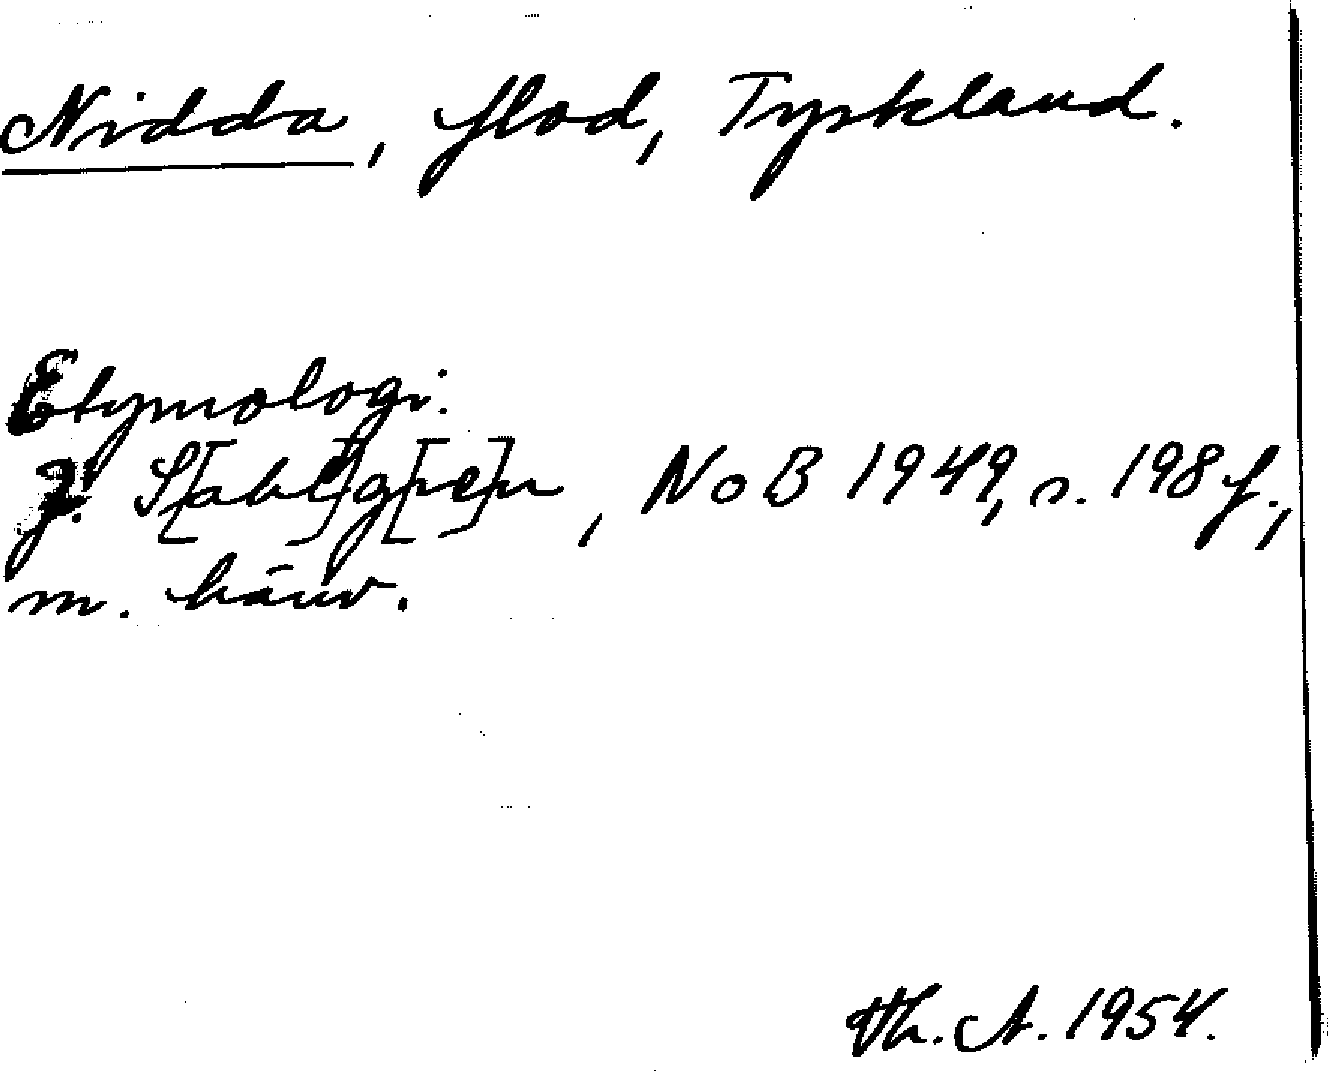 Nidda, flod, Tyskland.
Etymologi:
J. S[ahl]g[re]n, NoB 1949, s. 198 f.,
m. hänv.
Th. A. 1954.